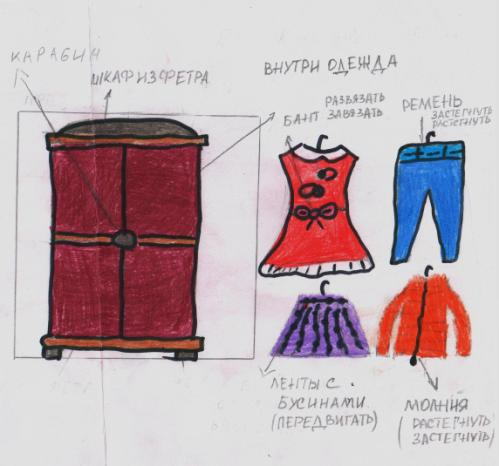 КАРАБИН
ШКАФ ИЗ ФЕТРА
ВНУТРИ ОДЕЖДА
БАНТ
РАЗВЯЗАТЬ
ЗАВЯЗАТЬ
РЕМЕНЬ
ЗАСТЕГНУТЬ
РАСТЕГНУТЬ
ЛЕНТЫ С
БУСИНАМИ
(ПЕРЕДВИГАТЬ)
МОЛНИЯ
(РАСТЕГНУТЬ
ЗАСТЕГНУТЬ)